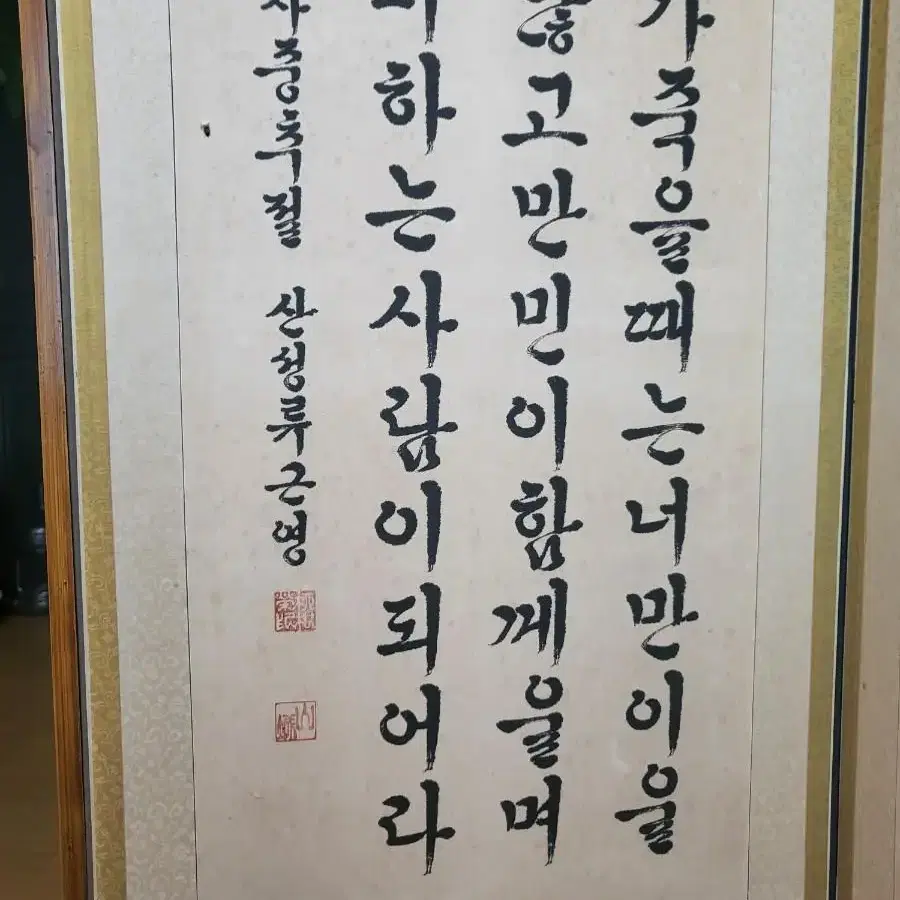 가죽을때는너만이울
않고만민이함께울며
하는사람이되어라
사중추절 산성류근영